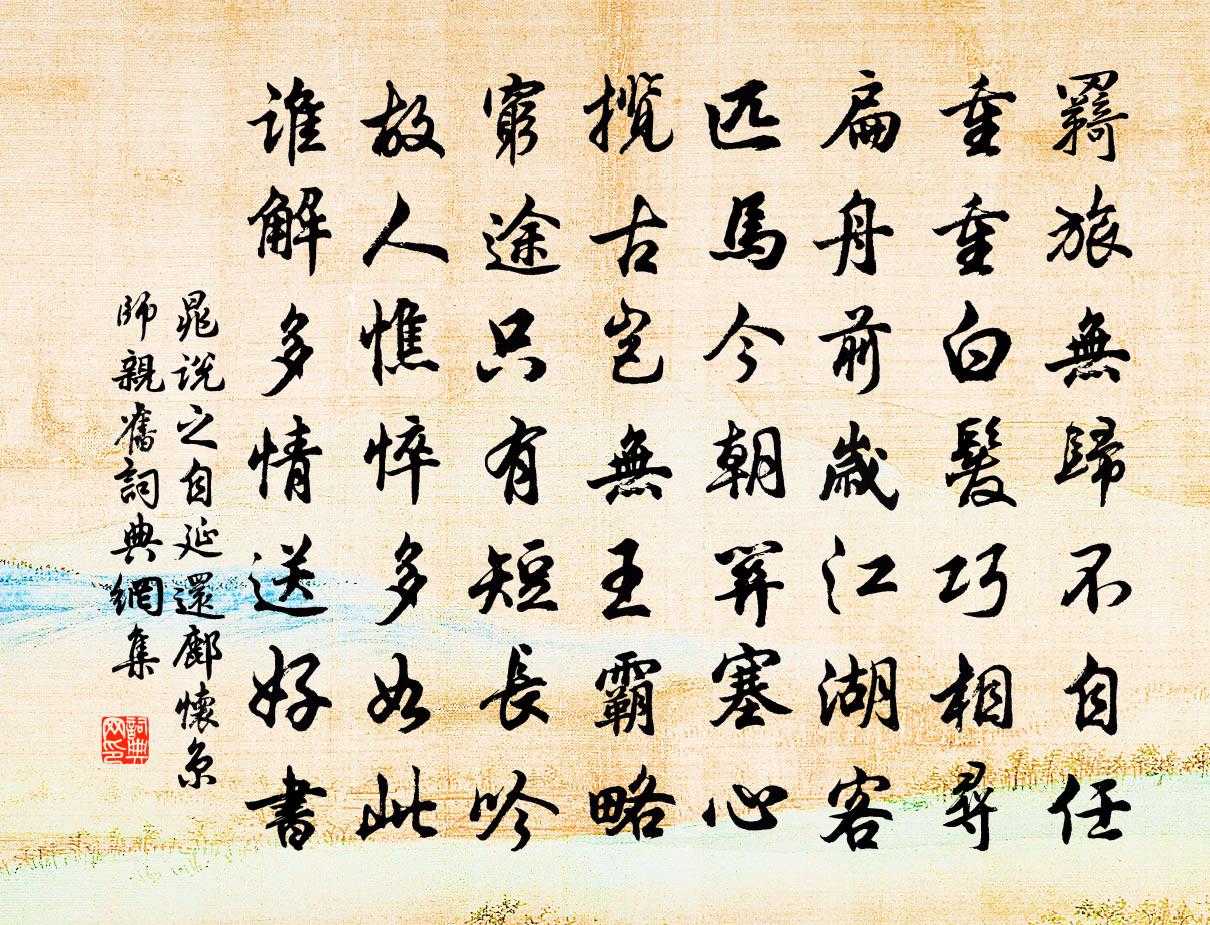 羇旅無歸不自任
重重白髮巧相尋
扁舟前歲江湖客
匹馬今朝關塞心
攬古豈無王霸略
窮途只有短長吟
故人憔悴多如此
誰解多情送好書
晁說之自延還鄜懷京
師親舊詞典網集
詞典
网印